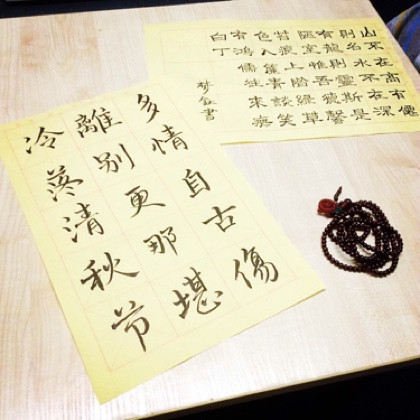 多情自古傷
離別更那堪
冷落清秋节
山不在高有僊
則名水不在深
有龍則靈斯是
陋室惟吾德馨
苔痕上階綠草
色入簾青談笑
有鴻儒往來無
白丁
書